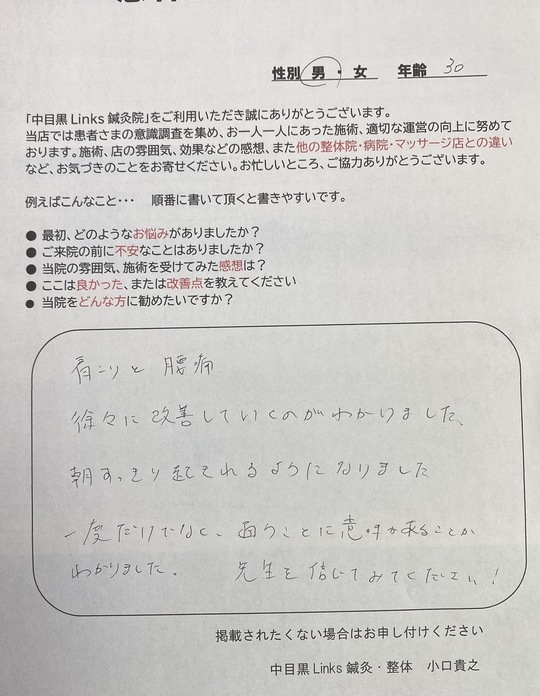 性別 男・女 年齢 30
「中目黒Links鍼灸院」をご利用いただき誠にありがとうございます。
当店では患者さまの意識調査を集め、お一人一人にあった施術、適切な運営の向上に努めて
おります。施術、店の雰囲気、効果などの感想、また他の整体院・病院・マッサージ店との違い
など、お気づきのことをお寄せください。お忙しいところ、ご協力ありがとうございます。
例えばこんなこと・・・ 順番に書いて頂くと書きやすいです。
● 最初、どのようなお悩みがありましたか？
● ご来院の前に不安なことはありましたか？
● 当院の雰囲気、施術を受けてみた感想は？
● ここは良かった、または改善点を教えてください
● 当院をどんな方に勧めたいですか？
肩こりと 腰痛
徐々に改善していくのがわかりました、
朝すっきり起きれるようになりました
一度だけでなく、通うことに意味があることが
わかりました。 先生を信じてみてください！
掲載されたくない場合はお申し付けください
中目黒Links鍼灸・整体 小口貴之